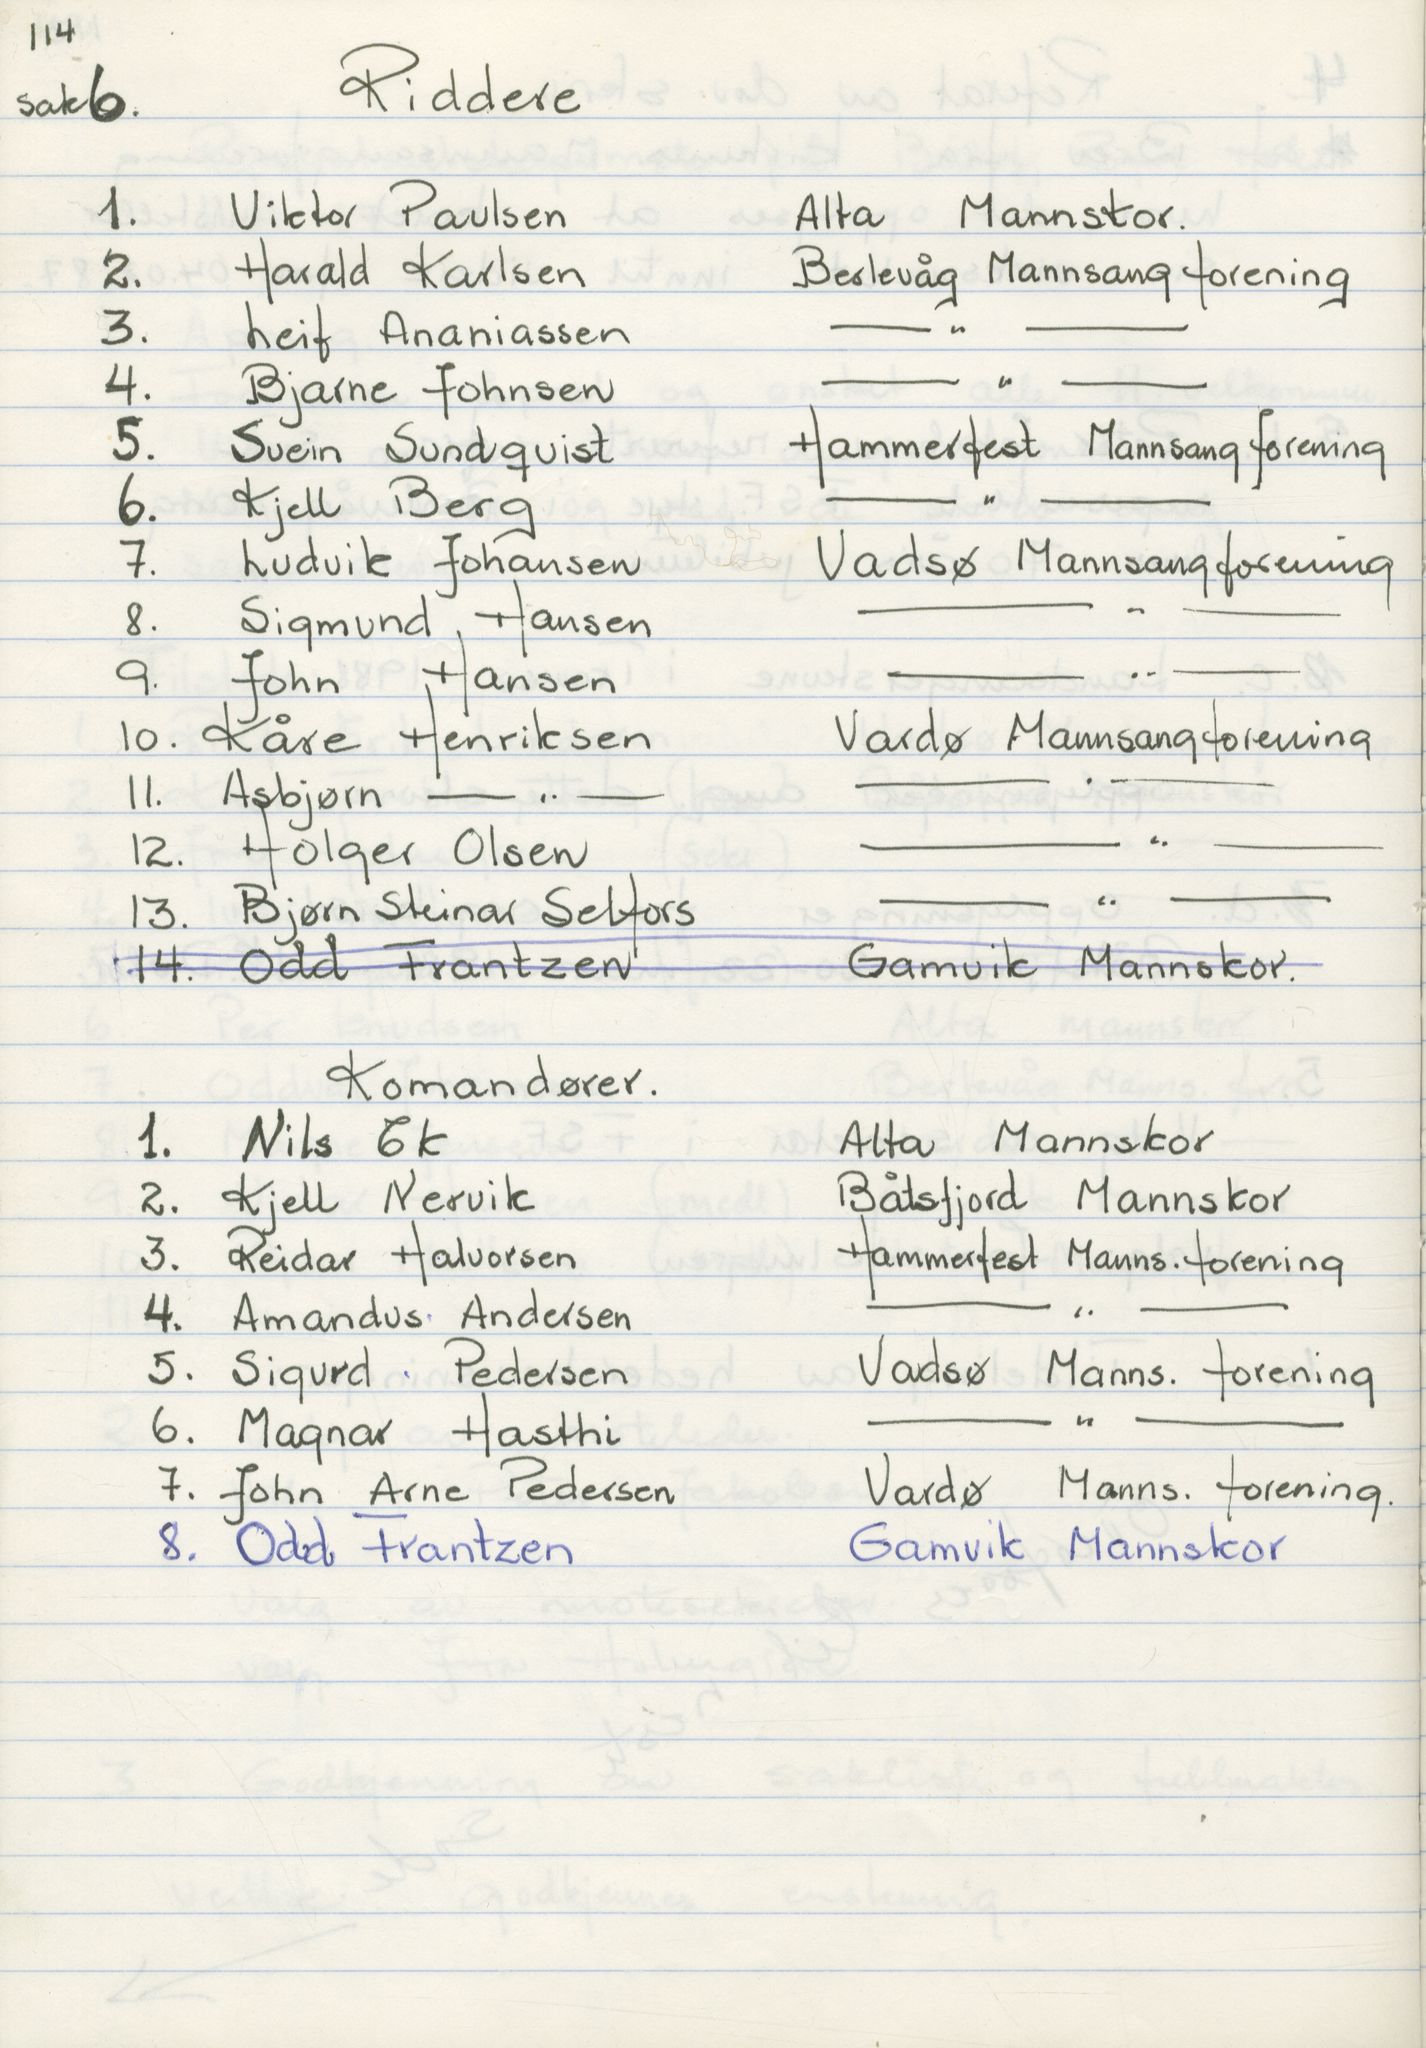 114
sak 6. Riddere
1. Viktor Paulsen Alta Mannskor.
2. Harald Karlsen Berlevåg Mannsangforening
3. Leif Ananiassen — " —
4. Bjarne Johnsen — " —
5. Svein Sundquist Hammerfest Mannsangforening
6. Kjell Berg — " —
7. Ludvik Johansen Vadsø Mannsangforening
8. Sigmund Hansen — " —
9. John Hansen — " —
10. Kåre Henriksen Vardø Mannsangforening
11. Asbjørn — " — — " —
12. Holger Olsen — " —
13. Bjørn Steinar Selfors — " —
14. Odd Frantzen Gamvik Mannskor.
Komandører.
1. Nils Ek Alta Mannskor
2. Kjell Nervik Båtsfjord Mannskor
3. Reidar Halvorsen Hammerfest Manns. forening
4. Amandus Andersen — " —
5. Sigurd Pedersen Vadsø Manns. forening
6. Magnar Hasthi — " —
7. John Arne Pedersen Vardø Manns. forening.
8. Odd Frantzen Gamvik Mannskor